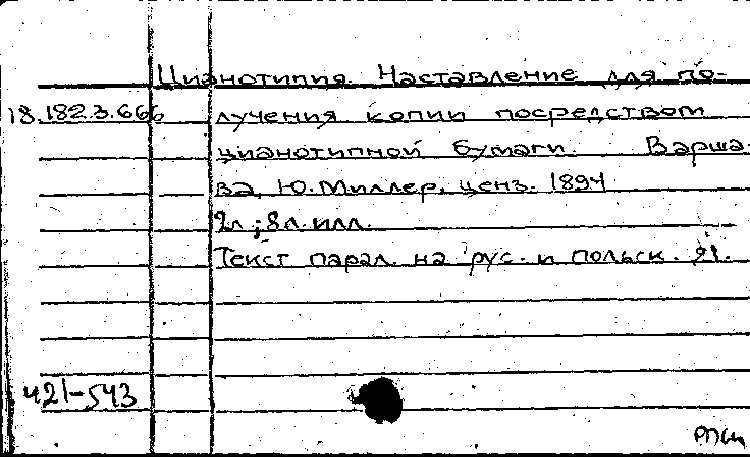 Цианотипия. Наставление для по-
18.182.3.666 лучения копии посредством
цианотипной бумаги. Варша-
ва, Ю. Миллер, ценз. 1894
2л; 8л. илл.
Текст парал. на рус. и польск. я.
421-543